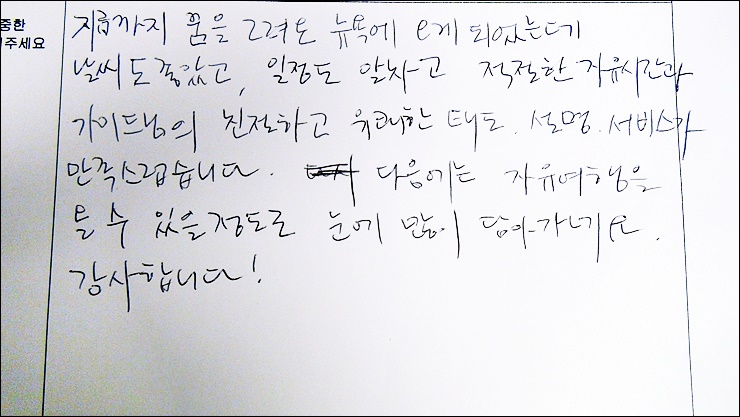 중한
주세요
지금까지 꿈을 그려온 뉴욕에 오게 되었는데
날씨도 좋았고, 일정도 알차고 적절한 자유시간과
가이드님의 친절하고 유쾌한 태도. 설명. 서비스가
만족스럽습니다. 다음에는 자유여행을
올 수 있을 정도로 눈에 많이 담아가네요.
감사합니다!